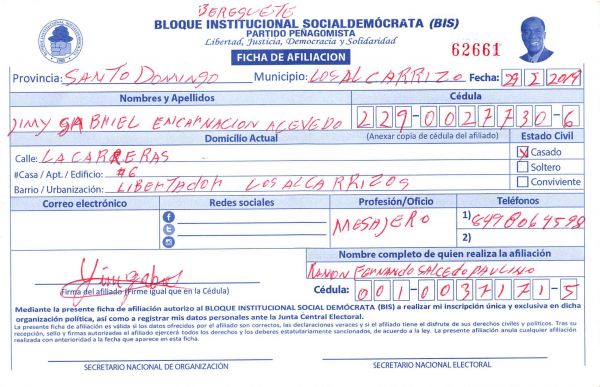 BEREGUETE
BLOQUE INSTITUCIONAL SOCIALDEMÓCRATA (BIS)
PARTIDO PEÑAGOMISTA
Libertad, Justicia, Democracia y Solidaridad
FICHA DE AFILIACION
62661
Provincia: SANTO DOMINGO Municipio: LOS ALCARRIZO Fecha: 29 I 2019
Nombres y Apellidos Cédula
JIMY GABRIEL ENCARNACION ACEVEDO 229-0027730-6
Domicilio Actual (Anexar copia de cédula del afiliado) Estado Civil
Calle: LA CARRERAS X Casado
#Casa / Apt. / Edificio: #6 Soltero
Barrio / Urbanización: LIBERTADOR LOS ALCARRIZOS Conviviente
Correo electrónico Redes sociales Profesión/Oficio Teléfonos
MESAJERO 1) 8498064598
2)
Nombre completo de quien realiza la afiliación
RAMON FERNANDO SALCEDO PAULINO
Firma del afiliado (Firme igual que en la Cédula) Cédula: 001-0037171-5
Mediante la presente ficha de afiliación autorizo al BLOQUE INSTITUCIONAL SOCIAL DEMÓCRATA (BIS) a realizar mi inscripción única y exclusiva en dicha
organización política, así como a registrar mis datos personales ante la Junta Central Electoral.
La presente ficha de afiliación es válida si los datos ofrecidos por el afiliado son correctos, las declaraciones veraces y si el afiliado tiene el disfrute de sus derechos civiles y políticos. Tras su
recepción, sello y firmas autorizadas el afiliado ejercerá todos los derechos y los deberes estatutariamente sancionados, de acuerdo a la ley. La presente afiliación anula cualquier afiliación
realizada con anterioridad a la fecha que aparece en esta ficha.
SECRETARIO NACIONAL DE ORGANIZACIÓN SECRETARIO NACIONAL ELECTORAL